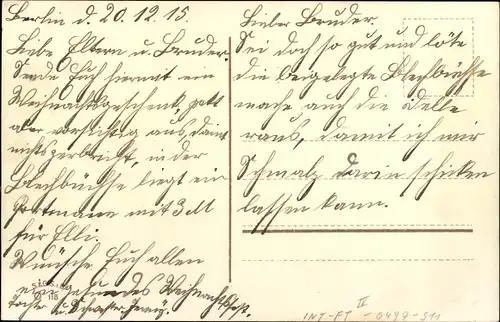 Berlin d. 20.12.15.
Liebe Eltern u. Bruder.
Sende Euch hiermit ein
Weihnachtsgeschenk, packt
aber vorsichtig aus, damit
nichts zerbricht, in der
Blechbüchse liegt ein
Portmane mit 3 M
für Elli.
Wünsche Euch allen
ein gesundes Weihnachtsfest.
Tochter u. Schwester Jenny.
Lieber Bruder.
Sei doch so gut und löte
die beigelegte Blechbüchse
mache auch die Delle
raus, damit ich mir
Schmalz darin schicken
lassen kann.
116
II
INT-FT - 0497-S11